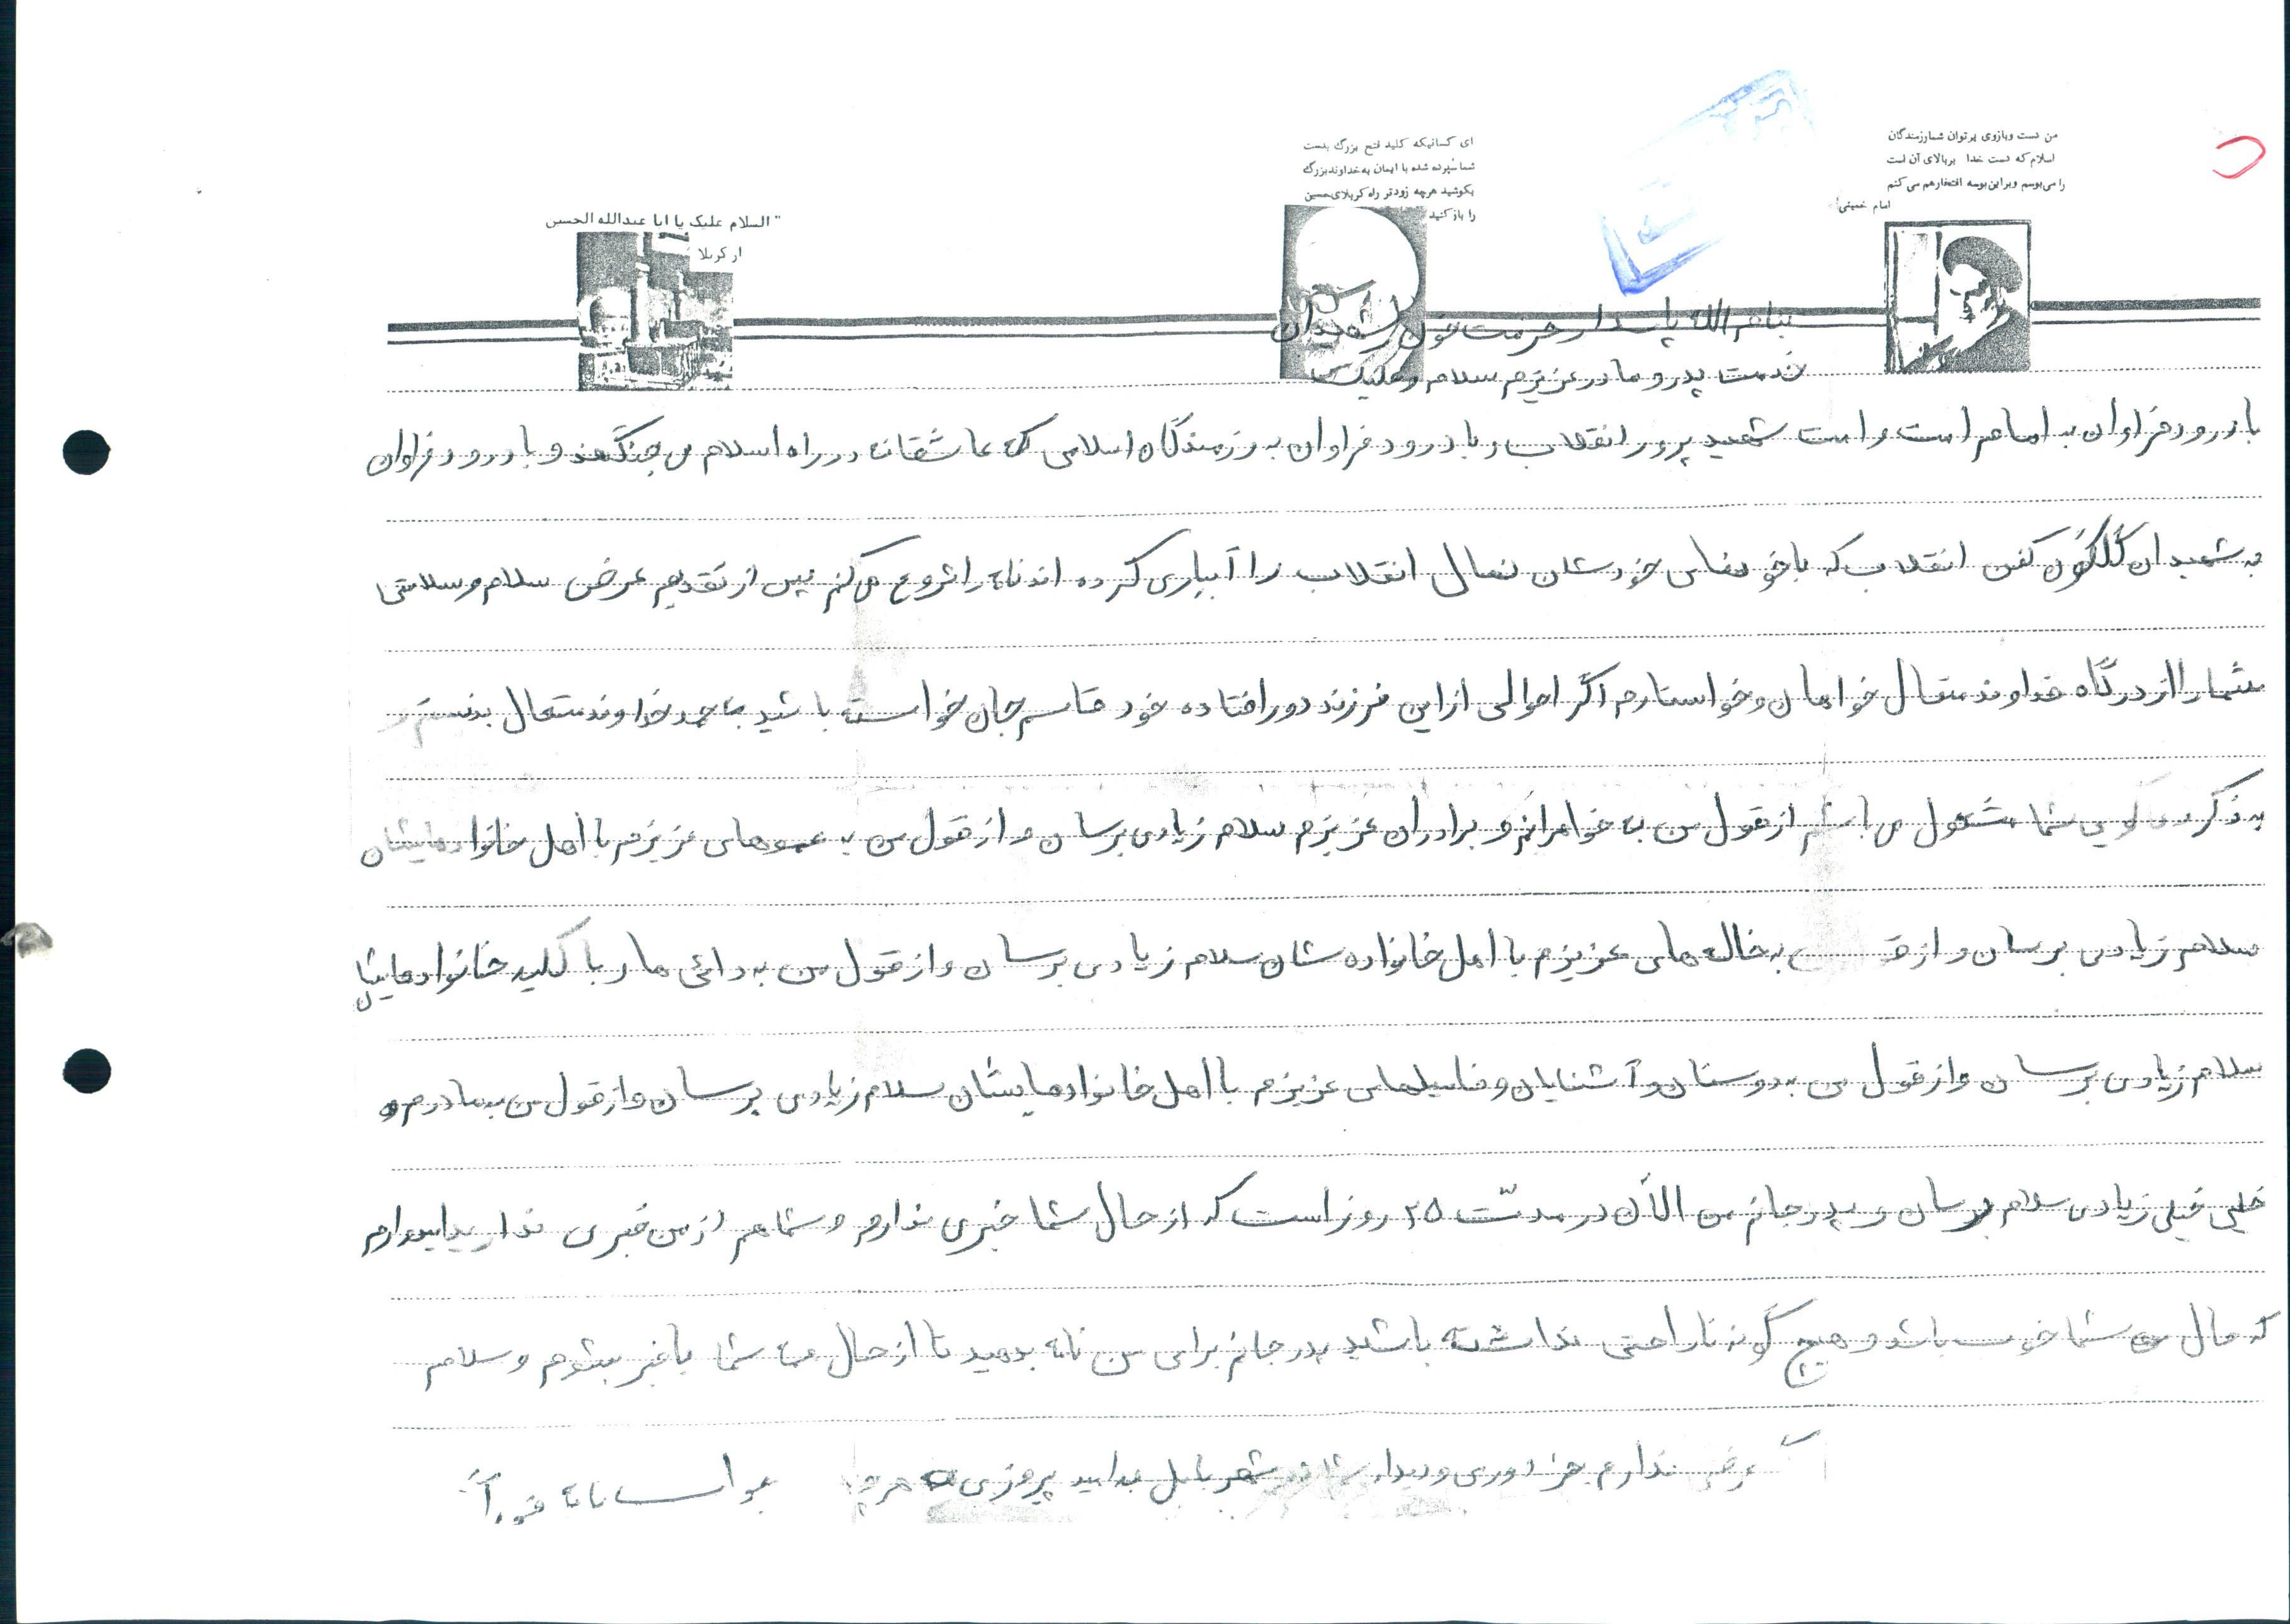 من دست وبازوی پرتوان شمارزمندگان
اسلام که دست خدا بربالای آن است
را می‌بوسم وبراین بوسه افتخارهم می کنم
امام خمینی
ای کسانیکه کلید فتح بزرگ بدست
شما سپرده شده با ایمان به خداوند بزرگ
بکوشید هرچه زودتر راه کربلای حسین
را باز کنید
" السلام علیک یا ابا عبدالله الحسین
از کربلا
بنام الله پاسدار حرمت خون شهیدان
خدمت پدر و مادر عزیزم سلام و علیک
با درود فراوان به امام امت و امت شهید پرور انقلاب و با درود فراوان به رزمندگان اسلامی که عاشقانه در راه اسلام می جنگند و با درود فراوان
به شهیدان گلگون کفن انقلاب که با خونهای خودشان نهال انقلاب را آبیاری کرده اند نامه را شروع می کنم پس از تقدیم عرض سلام و سلامتی
شما را از درگاه خداوند متعال خواهان و خواستارم اگر احوالی از این فرزند دور افتاده خود قاسم جان خواسته باشید به حمد خداوند متعال بد نیستم و
به ذکر دعا گویی شما مشغول می باشم از قول من به خواهرانم و برادران عزیزم سلام زیادی برسان و از قول من به عموهای عزیزم با اهل خانواده هایشان
سلام زیادی برسان و از به خاله های عزیزم با اهل خانواده شان سلام زیادی برسان و از قول من به دائی ها و با کلیه خانواده هایشان
سلام زیادی برسان و از قول من به دوستان و آشنایان و فامیلهای عزیزم با اهل خانواده هایشان سلام زیادی برسان و از قول من به مادرم و
خیلی خیلی زیادی سلام برسان و پدر جانم من الآن در مدتّ ۲۵ روز است که از حال شما خبری ندارم و شما هم از من خبری ندارید امیدوارم
که حال شما خوب باشد و هیچ گونه ناراحتی نداشته باشید پدر جانم برای من نامه بدهید تا از حال شما با خبر بشوم و سلام
عرضی ندارم بجز دوری و دیدار شما شهر بابل پیروزی هرچه
جواب نامه فوراً